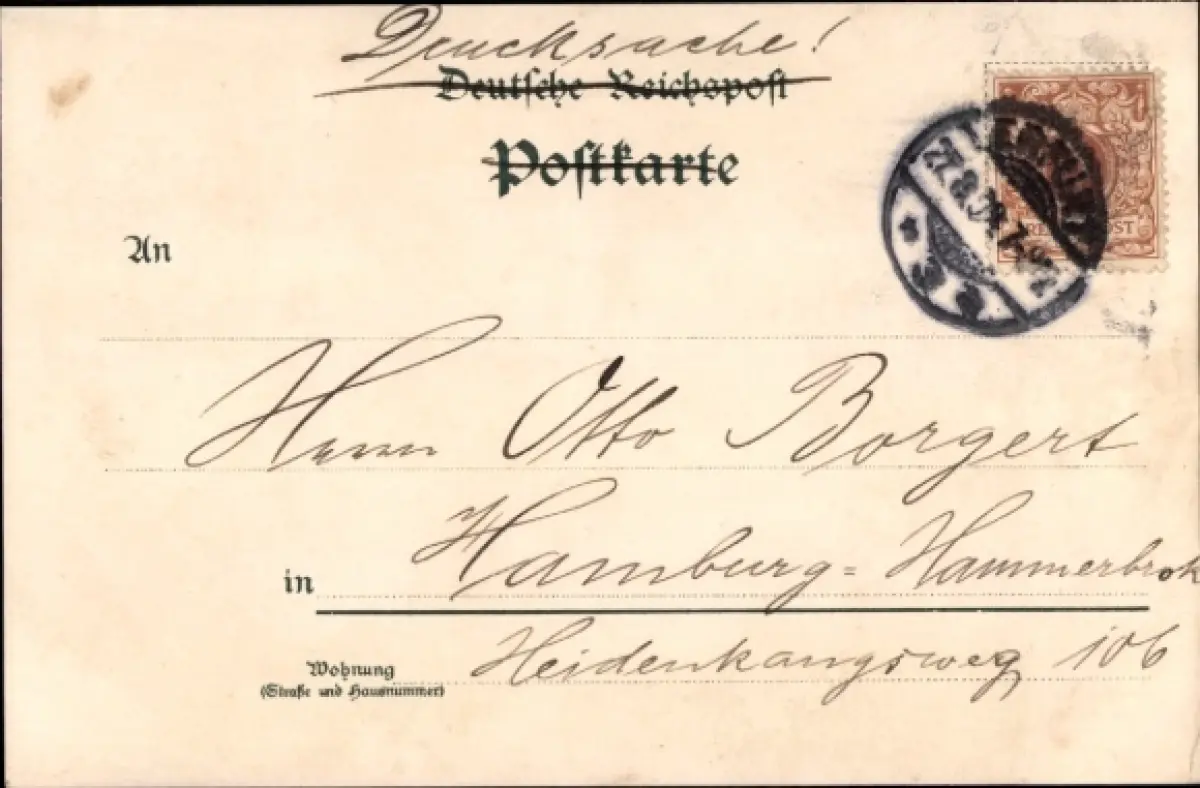 Drucksache!
Deutsche Reichspost
Postkarte
An
Herrn Otto Borgert
in Hamburg-Hammerbrok
Wohnung Heidenkangsweg 106
(Straße und Hausnummer)